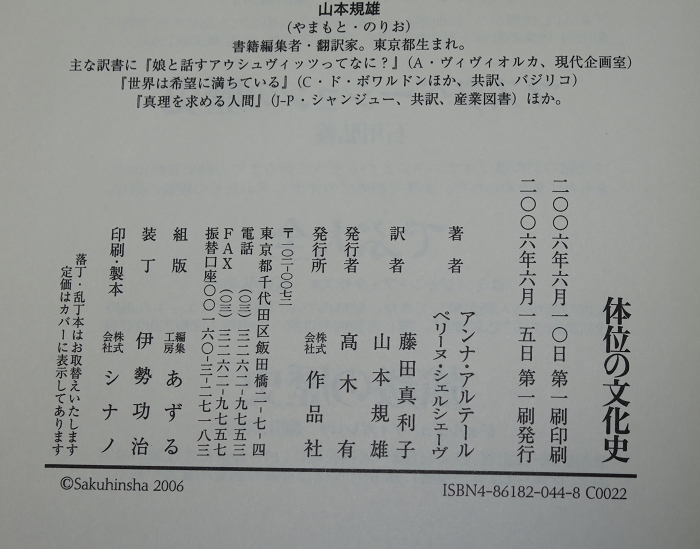 山本規雄
(やまもと・のりお)
書籍編集者・翻訳家。東京都生まれ。
主な訳書に『娘と話すアウシュヴィッツってなに?』(A・ヴィヴィオルカ、現代企画室)
『世界は希望に満ちている』(C・ド・ボワルドンほか、共訳、バジリコ)
『真理を求める人間』(J-P・シャンジュー、共訳、産業図書)ほか。
体位の文化史
二〇〇六年六月一〇日 第一刷印刷
二〇〇六年六月一五日 第一刷発行
著者 アンナ・アルテール
ペリーヌ・シェルシェーヴ
訳者 藤田真利子
山本規雄
発行者 髙木有
発行所 株式会社 作品社
〒一〇二-〇〇七二
東京都千代田区飯田橋二-七-四
電話 (〇三)三二六二-九七五三
FAX (〇三)三二六二-九七五七
振替口座〇〇一六〇-三-二七一八三
組版 編集工房 あずる
装丁 伊勢功治
印刷・製本 株式会社 シナノ
落丁・乱丁本はお取替えいたします
定価はカバーに表示してあります
©Sakuhinsha 2006
ISBN4-86182-044-8 C0022